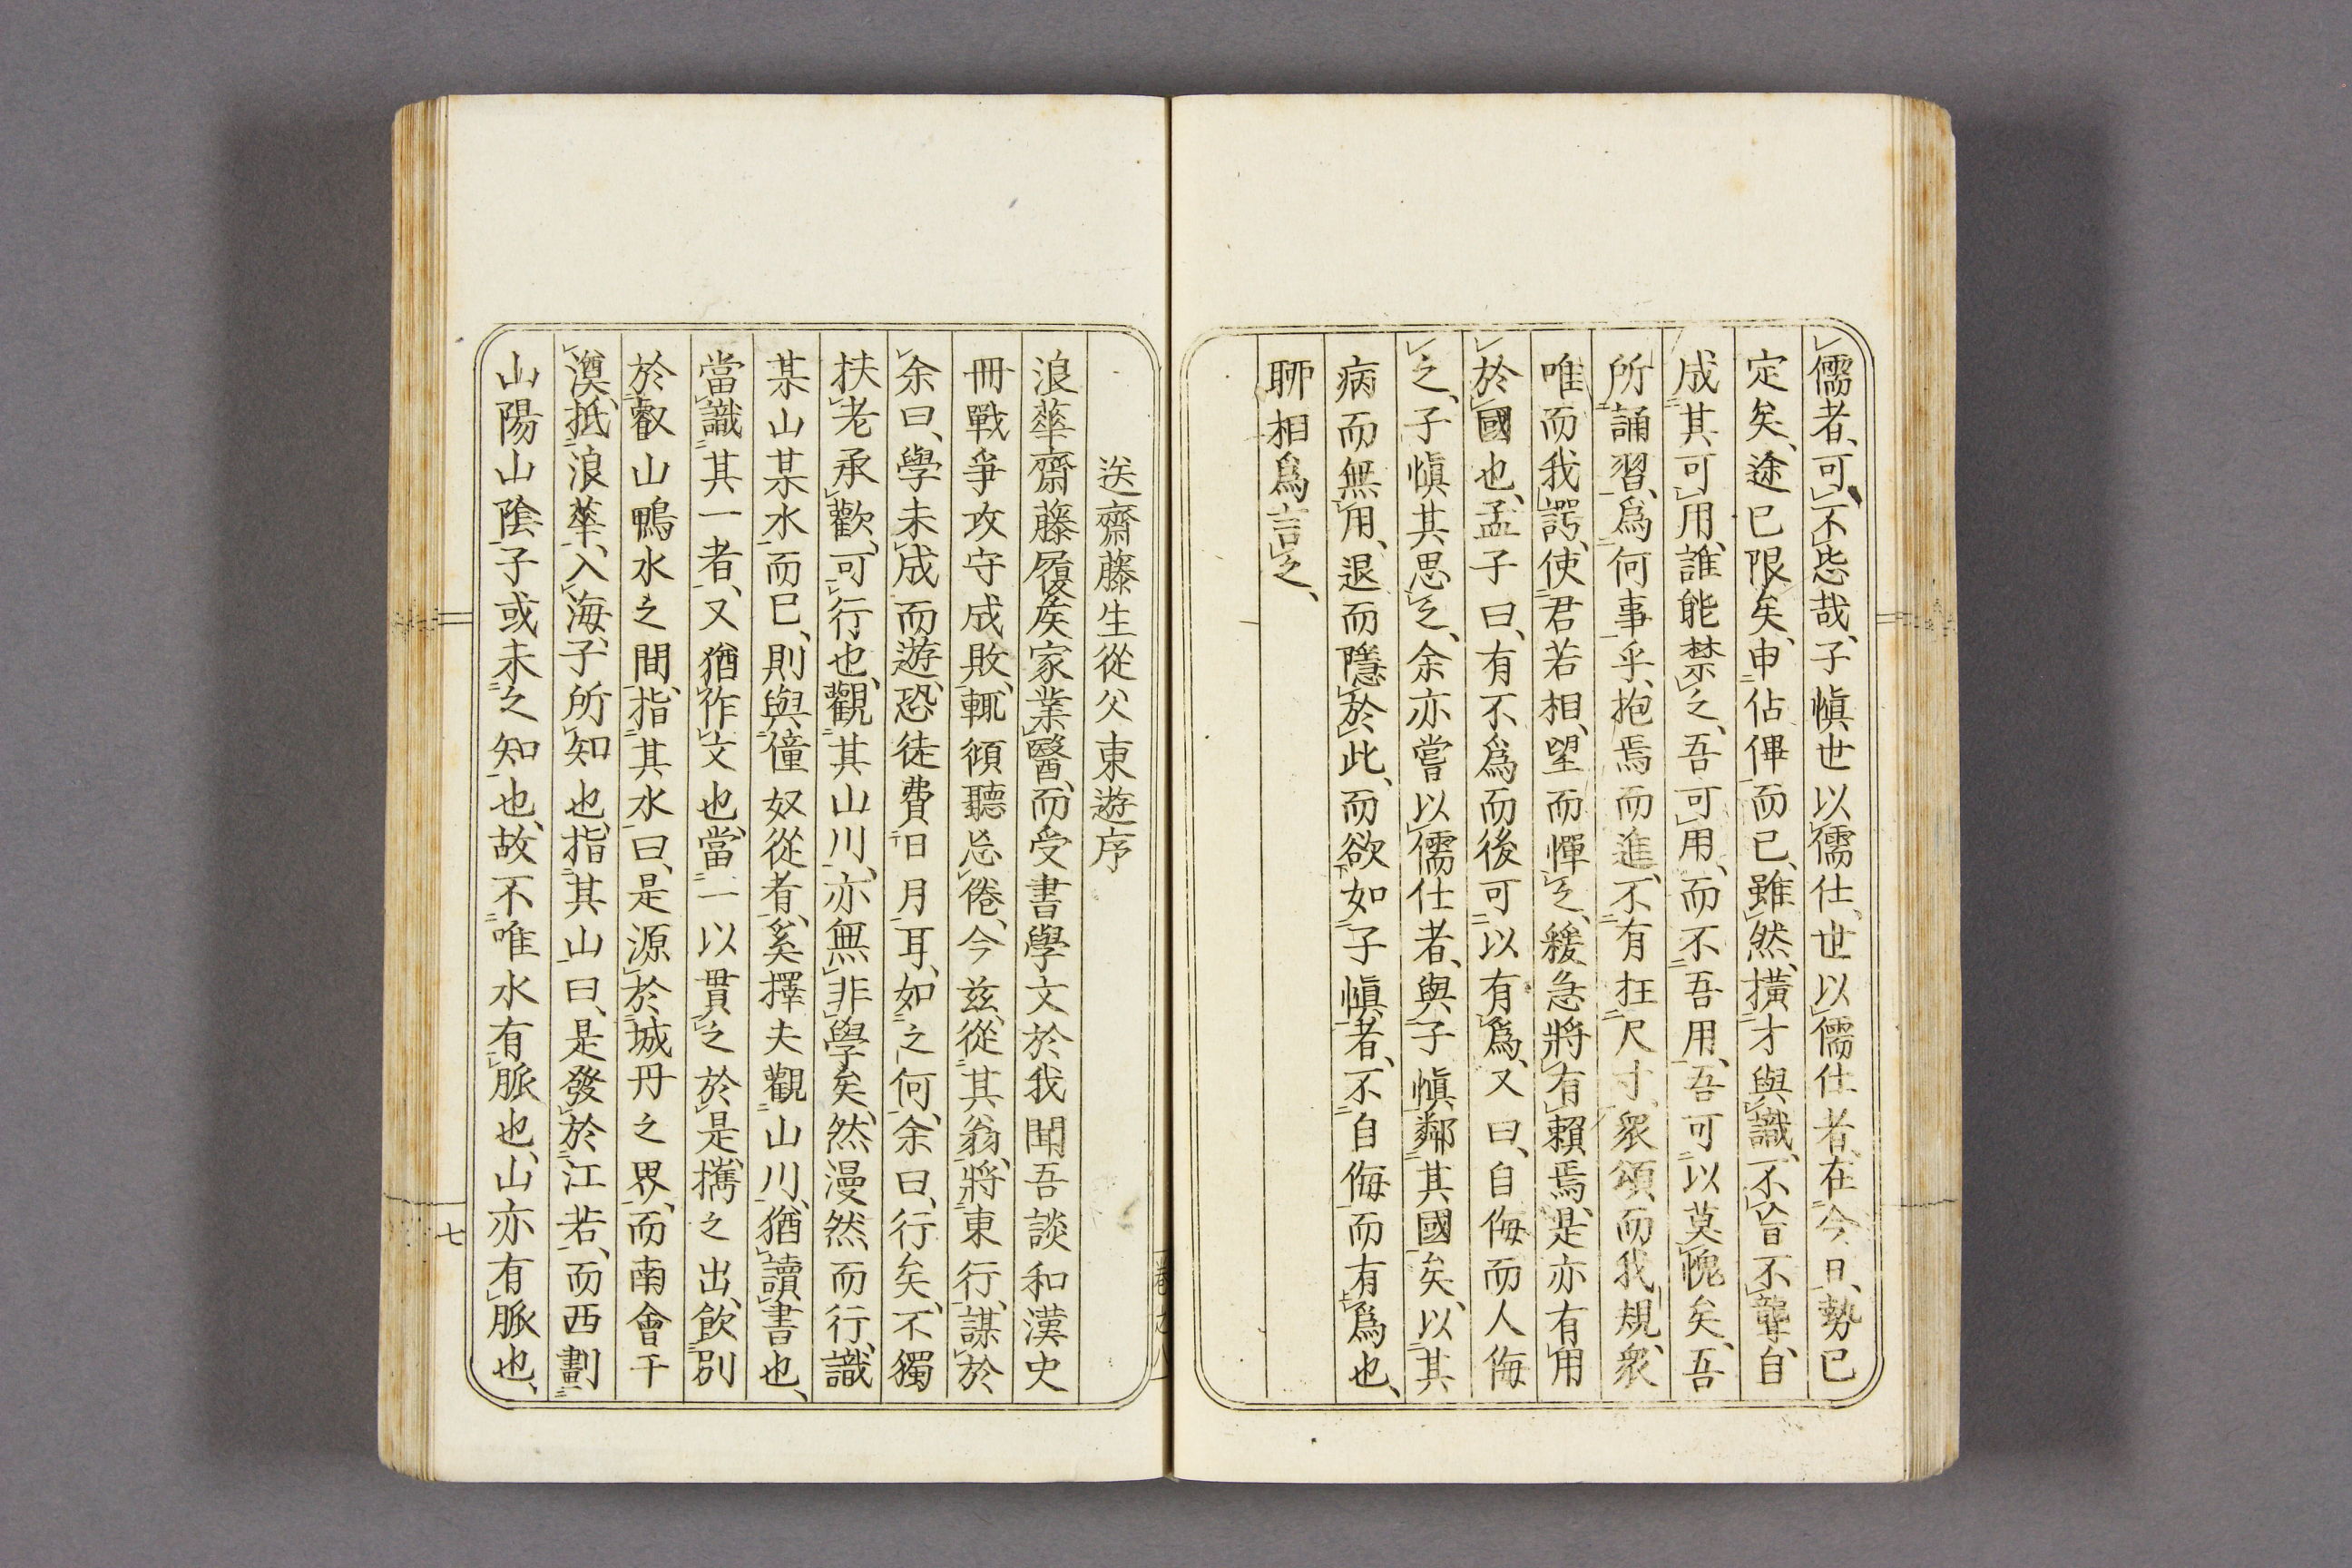 儒者、可不悲哉、子愼世以儒仕、世以儒仕者、在今日、勢已
定矣、途已限矣、申佔俾而已、雖然、橫才與識、不盲不聾、自
成其可用、誰能禁之、吾可用、而不吾用、吾可以莫愧矣、吾
所誦習、爲何事乎、抱焉而進、不有枉尺寸、衆頌而我規、衆
唯而我諤、使君若相、望而憚之、緩急將有賴焉、是亦有用
於國也、孟子曰、有不爲而後可以有爲、又曰、自侮而人侮
之、子愼其思之、余亦嘗以儒仕者、與子愼鄰其國矣、以其
病而無用、退而隱於此、而欲如子愼者、不自侮而有爲也、
聊相爲言之、
卷之八
送齋藤生從父東遊序
浪華齋藤履矦家業醫、而受書學文於我聞吾談和漢史
冊戰爭攻守成敗、輒傾聽忘倦、今茲、從其翁、將東行、謀於
余曰、學未成而遊、恐徒費日月耳、如之何、余曰、行矣、不獨
扶老承歡、可行也、觀其山川、亦無非學矣、然漫然而行、識
某山某水而已、則與僮奴從者、奚擇夫觀山川、猶讀書也、
當識其一者、又猶作文也、當一以貫之於是、攜之出、飮別
於叡山鴨水之間、指其水曰、是源於城丹之界、而南會于
澳、抵浪華、入海、子所知也、指其山曰、是發於江若、而西劃
山陽山陰子或未之知也、故不唯水有脈也、山亦有脈也、
七